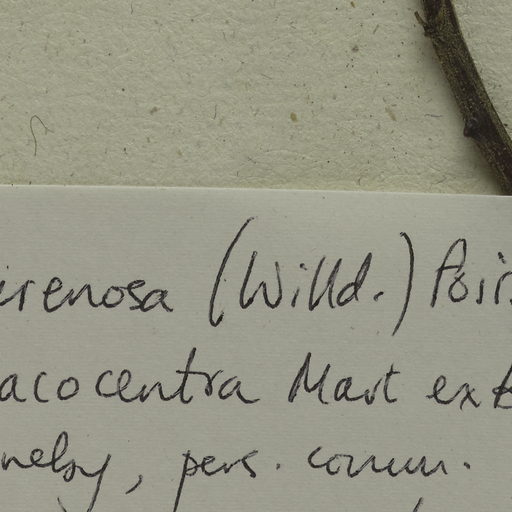 irenosa (Willd.) Poir
acocentra Mart ex B
neby, pers. comm.